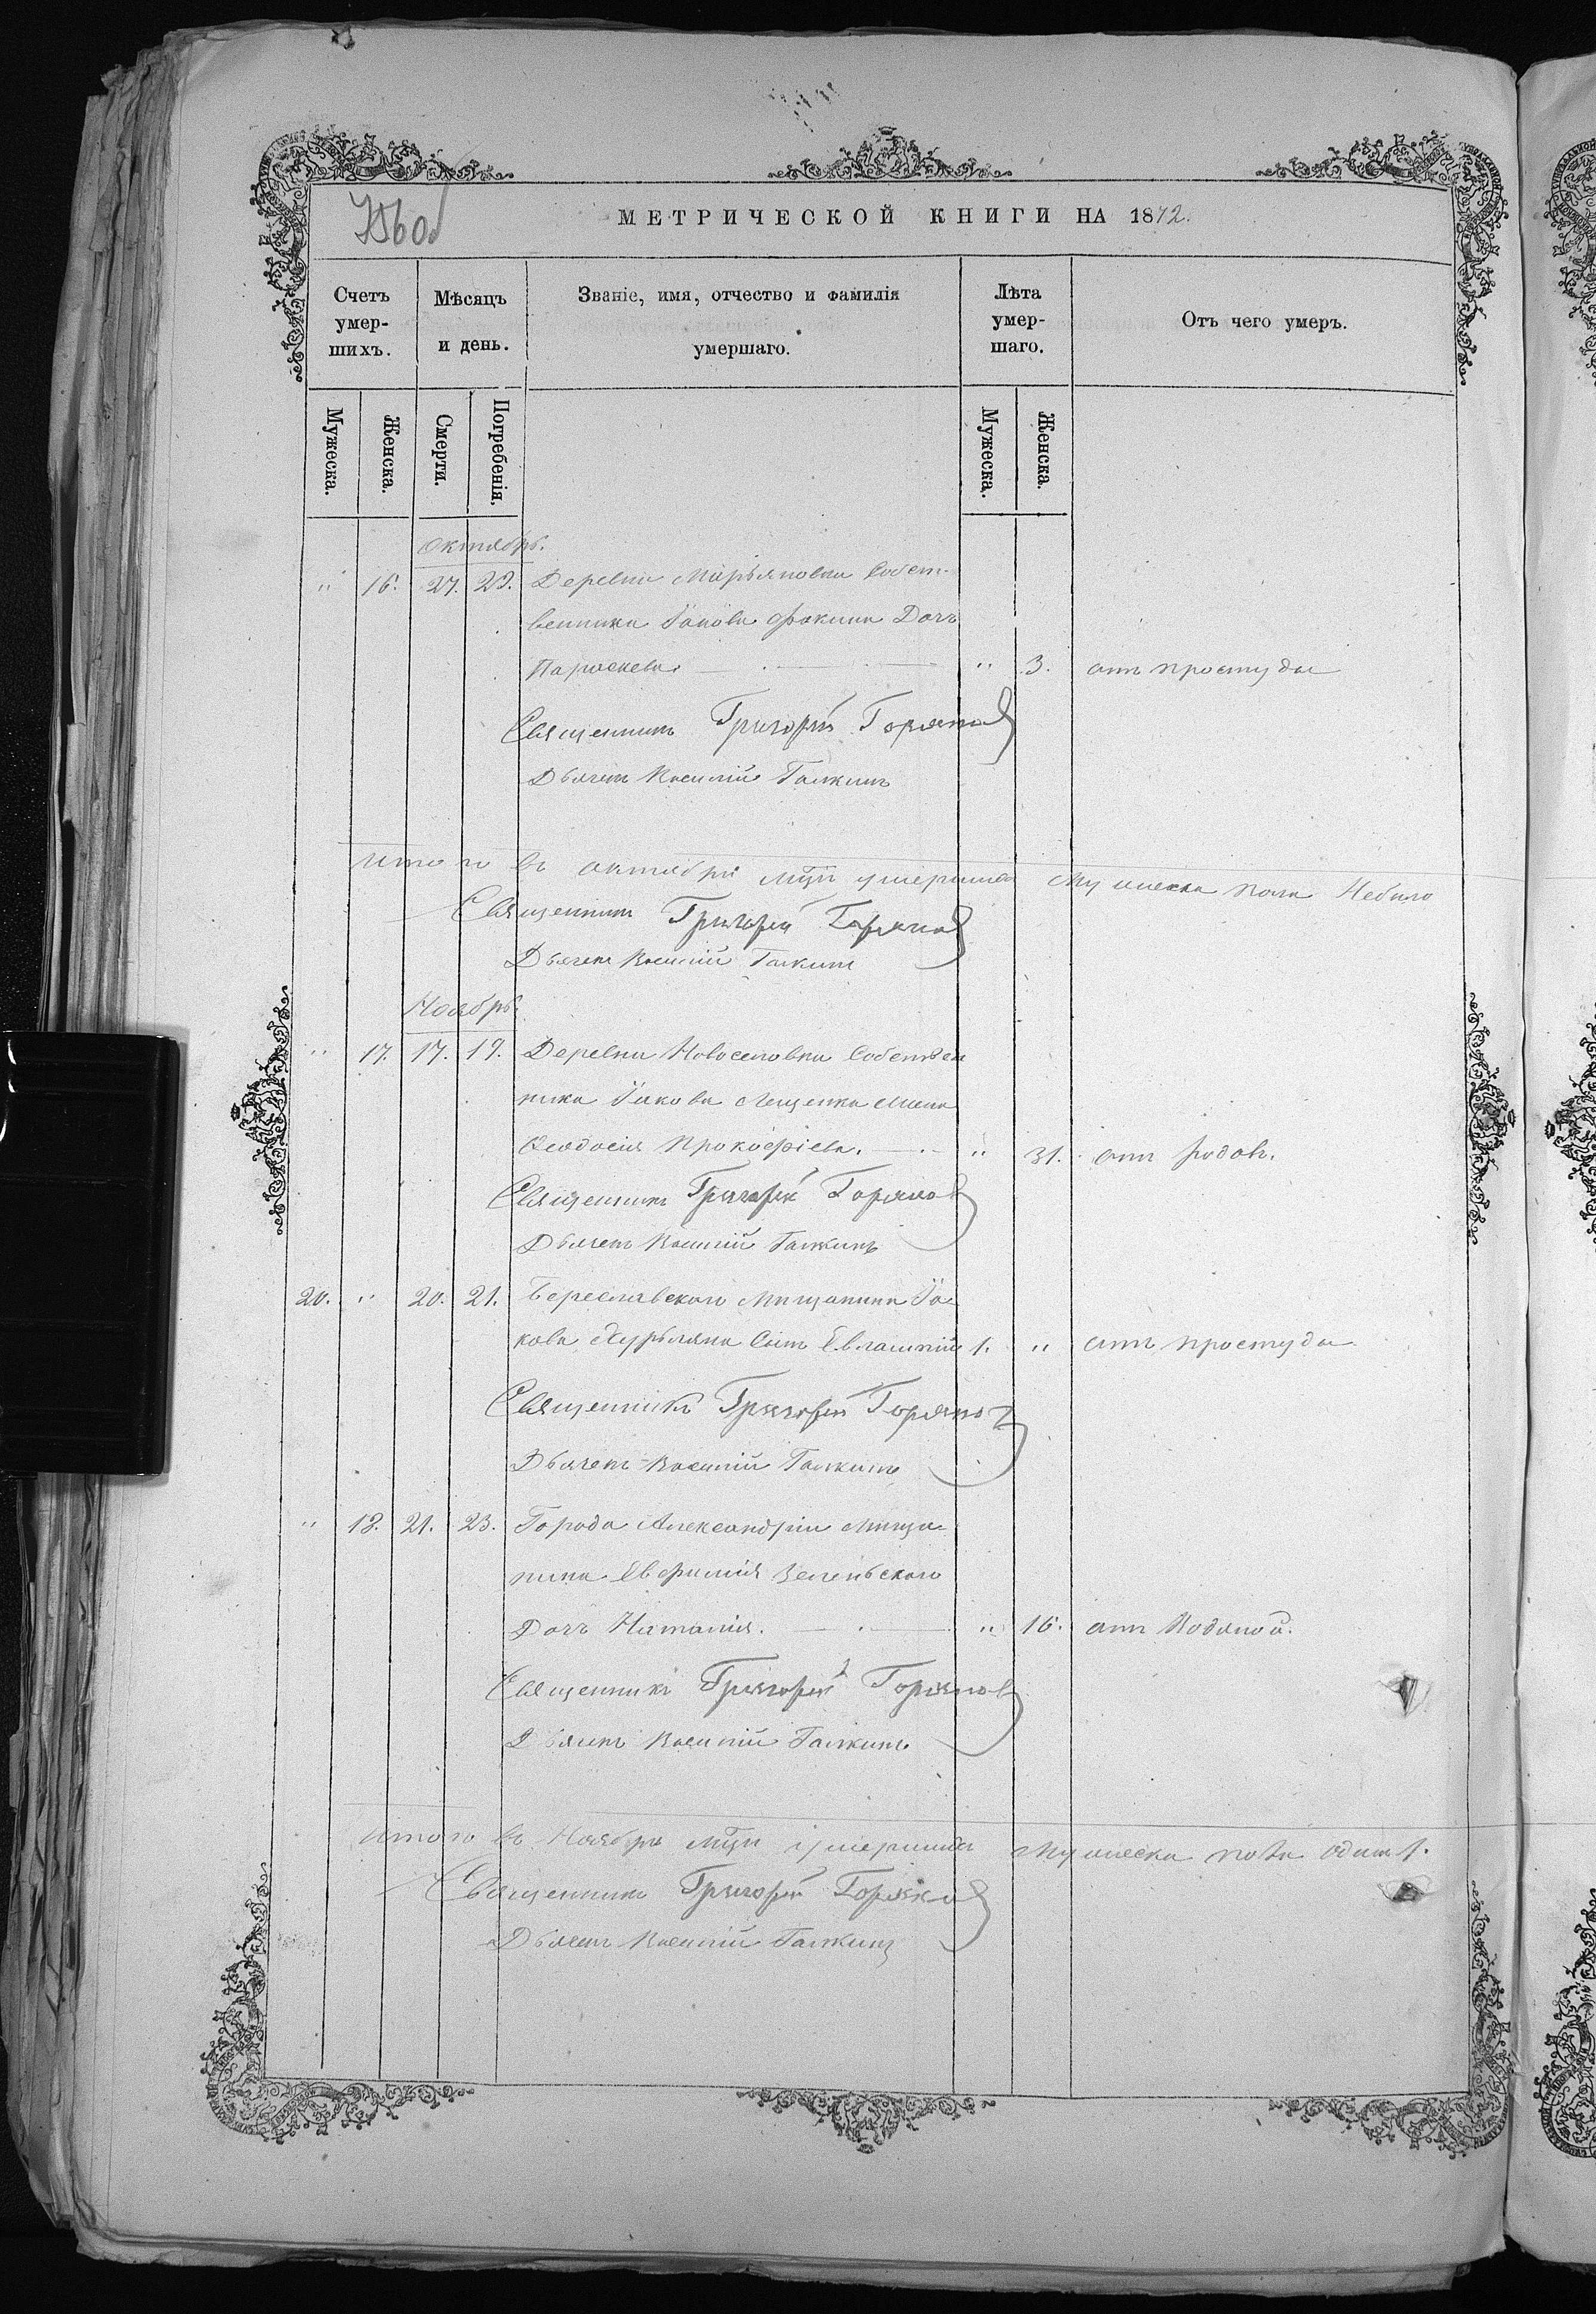 МЕТРИЧЕСКОЙ КНИГИ НА 1872.
Счетъ умер-шихъ.
Мѣсяцъ и день.
Званіе, имя, отчество и фамилія умершаго.
Лѣта умер-шаго.
Отъ чего умеръ.
Мужеска.
Женска.
Смерти.
Погребенія.
Мужеска.
Женска.
Октябрь.
" 16. 27. 29. Деревни Марьяновки Собст-
венника Іакова Фокина Дочь
Параскева. " 3. отъ простуды
Священникъ Григорій Горяновъ
Дьячекъ Василій Галкинъ
Итого въ октябрѣ мцѣ умершихъ Мужеска пола Небыло
Священникъ Григорій Горяновъ
Дьячекъ Василій Галкинъ
Ноябрь.
" 17. 17. 19. Деревни Новоселовки Собствен
ника Іакова Лещенка Жена
Ѳеодосія Прокофіева. " 31. отъ родовъ.
Священникъ Григорій Горяновъ
Дьячекъ Василій Галкинъ
20. " 20. 21. Береславскаго Мѣщанина Іа-
кова Сынъ Евлампій 1. " отъ простуды
Священникъ Григорій Горяновъ
Дьячекъ Василій Галкинъ
" 18. 21. 23. Города Александріи Мѣща-
нина Евфимія Зеленьскаго
Дочь Наталія. " 16. отъ Водяной.
Священникъ Григорій Горяновъ
Дьячекъ Василій Галкинъ
Итого въ Ноябрѣ мцѣ умершихъ Мужеска пола один 1.
Священникъ Григорій Горяновъ
Дьячекъ Василій Галкинъ